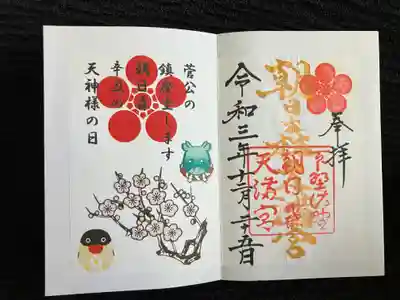 奉拝
朝日森天満宮
朝日森
天満宮
令和三年十二月二十五日
菅公の
鎮座まします
朝日森
天神様の日